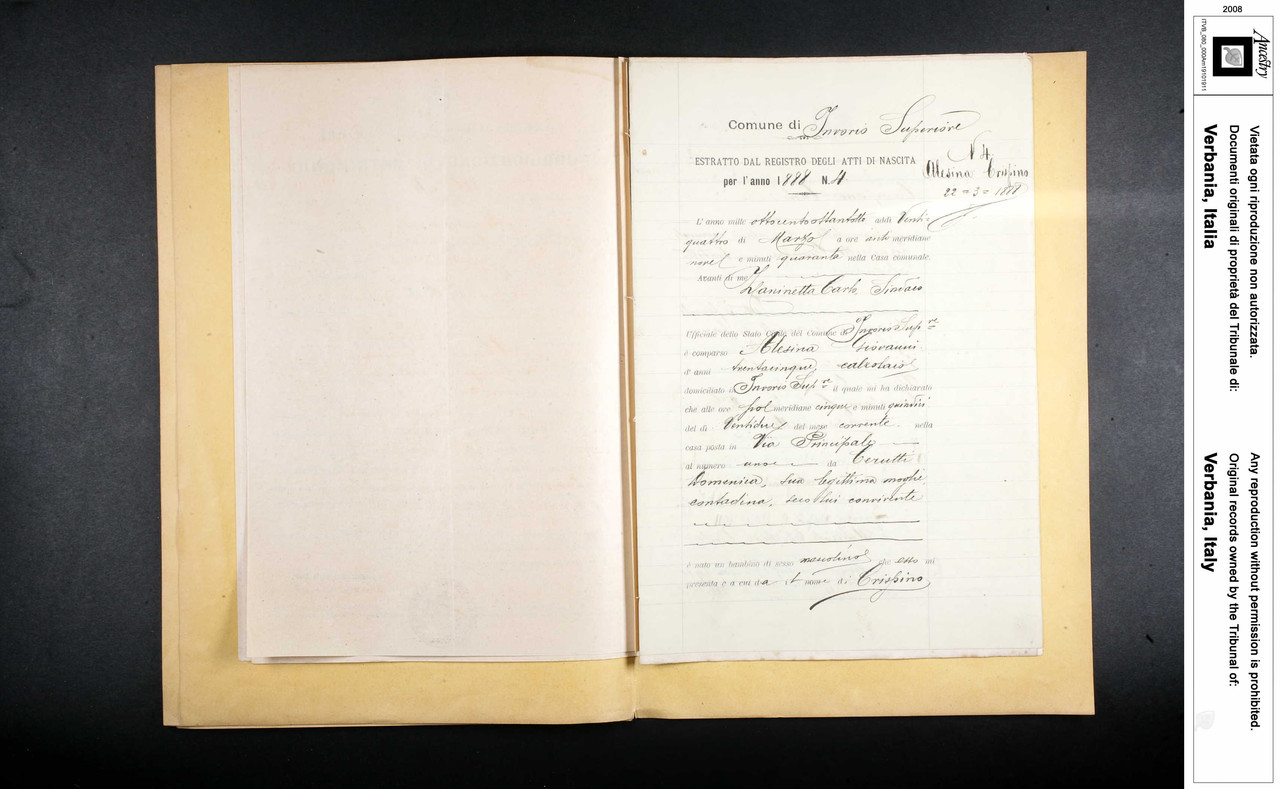 Comune di Invorio Superiore
ESTRATTO DAL REGISTRO DEGLI ATTI DI NASCITA
per l'anno 1888 N. 4
N 4
Alesina Crispino
22 = 3 = 1888
L'anno mille ottocentottantotto addì Venti-
quattro di Marzo a ore anti meridiane
nove e minuti quaranta nella Casa comunale.
Avanti di me
Zaninetta Carlo Sindaco
Uffiziale dello Stato Civile del Comune di Invorio Sup.re
è comparso Alesina Giovanni
d'anni trentacinque, calzolaio
domiciliato in Invorio Sup.re il quale mi ha dichiarato
che alle ore pom meridiane cinque e minuti quindici
del dì Ventidue del mese corrente nella
casa posta in Via Principale
al numero uno da Cerutti
Domenica, sua legittima moglie
contadina, seco lui convivente
è nato un bambino di sesso mascolino che esso mi
presenta e a cui dà il nome di Crispino
2008
Ancestry
ITVB_080_000Am19101911
Vietata ogni riproduzione non autorizzata.
Documenti originali di proprietà del Tribunale di:
Verbania, Italia
Any reproduction without permission is prohibited.
Original records owned by the Tribunal of:
Verbania, Italy